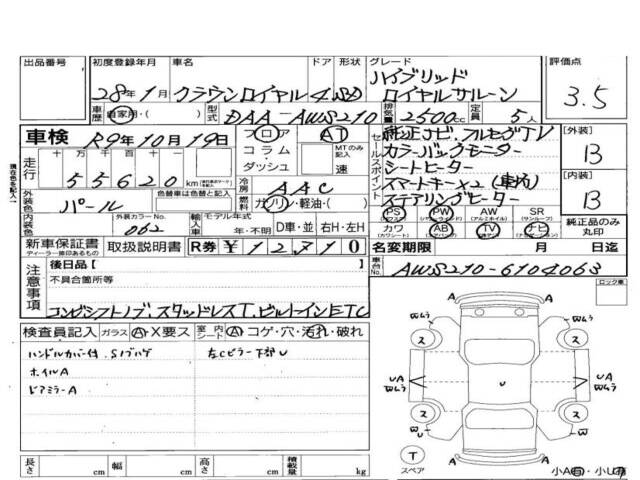 出品番号 初度登録年月 車名 ドア 形状 グレード 評価点
28年1月 クラウンロイヤル 4 SD ハイブリッド ロイヤルサルーン 3.5
車歴 自家用・( ) 型式 DAA-AWS210 排気量 2500cc 定員 5人
車検 R9年10月19日 フロア AT
コラム MTのみ記入
ダッシュ 速
走行 十万 万 千 百 十
55620 km
セールスポイント
純正ナビ・フルセグTV
カラーバックモニター
シートヒーター
スマートキー×2(車内)
ステアリングヒーター
[外装] B
[内装] B
外装色 パール 色替車は色替え前色記入
冷房 AAC
燃料 ガソリン・軽油・( )
内装色 外装カラーNo. 062
輸入車 モデル年式 年・不明 D車・並 右H・左H
PS PW AW SR
カワ AB TV ナビ
純正品のみ丸印
新車保証書 取扱説明書 R券 ¥12310
ディーラー捺印あるもの
名変期限 月 日迄
車台No. AWS210-6104063
注意事項
後日品[ ]
不具合箇所等
コンビシフトノブ、スタッドレスT、ビルトインETC
ロック車
検査員記入 ガラス A・X要ス 室内シート A・コゲ・穴・汚れ・破れ
ハンドルカバー付、Sノブハゲ 左Cピラー下部U
ホイルA
ドアミラーA
A A
UA UA
U
ス ス
ス ス
A A
T
スペア
長さ cm 幅 cm 高さ cm 積載量 kg